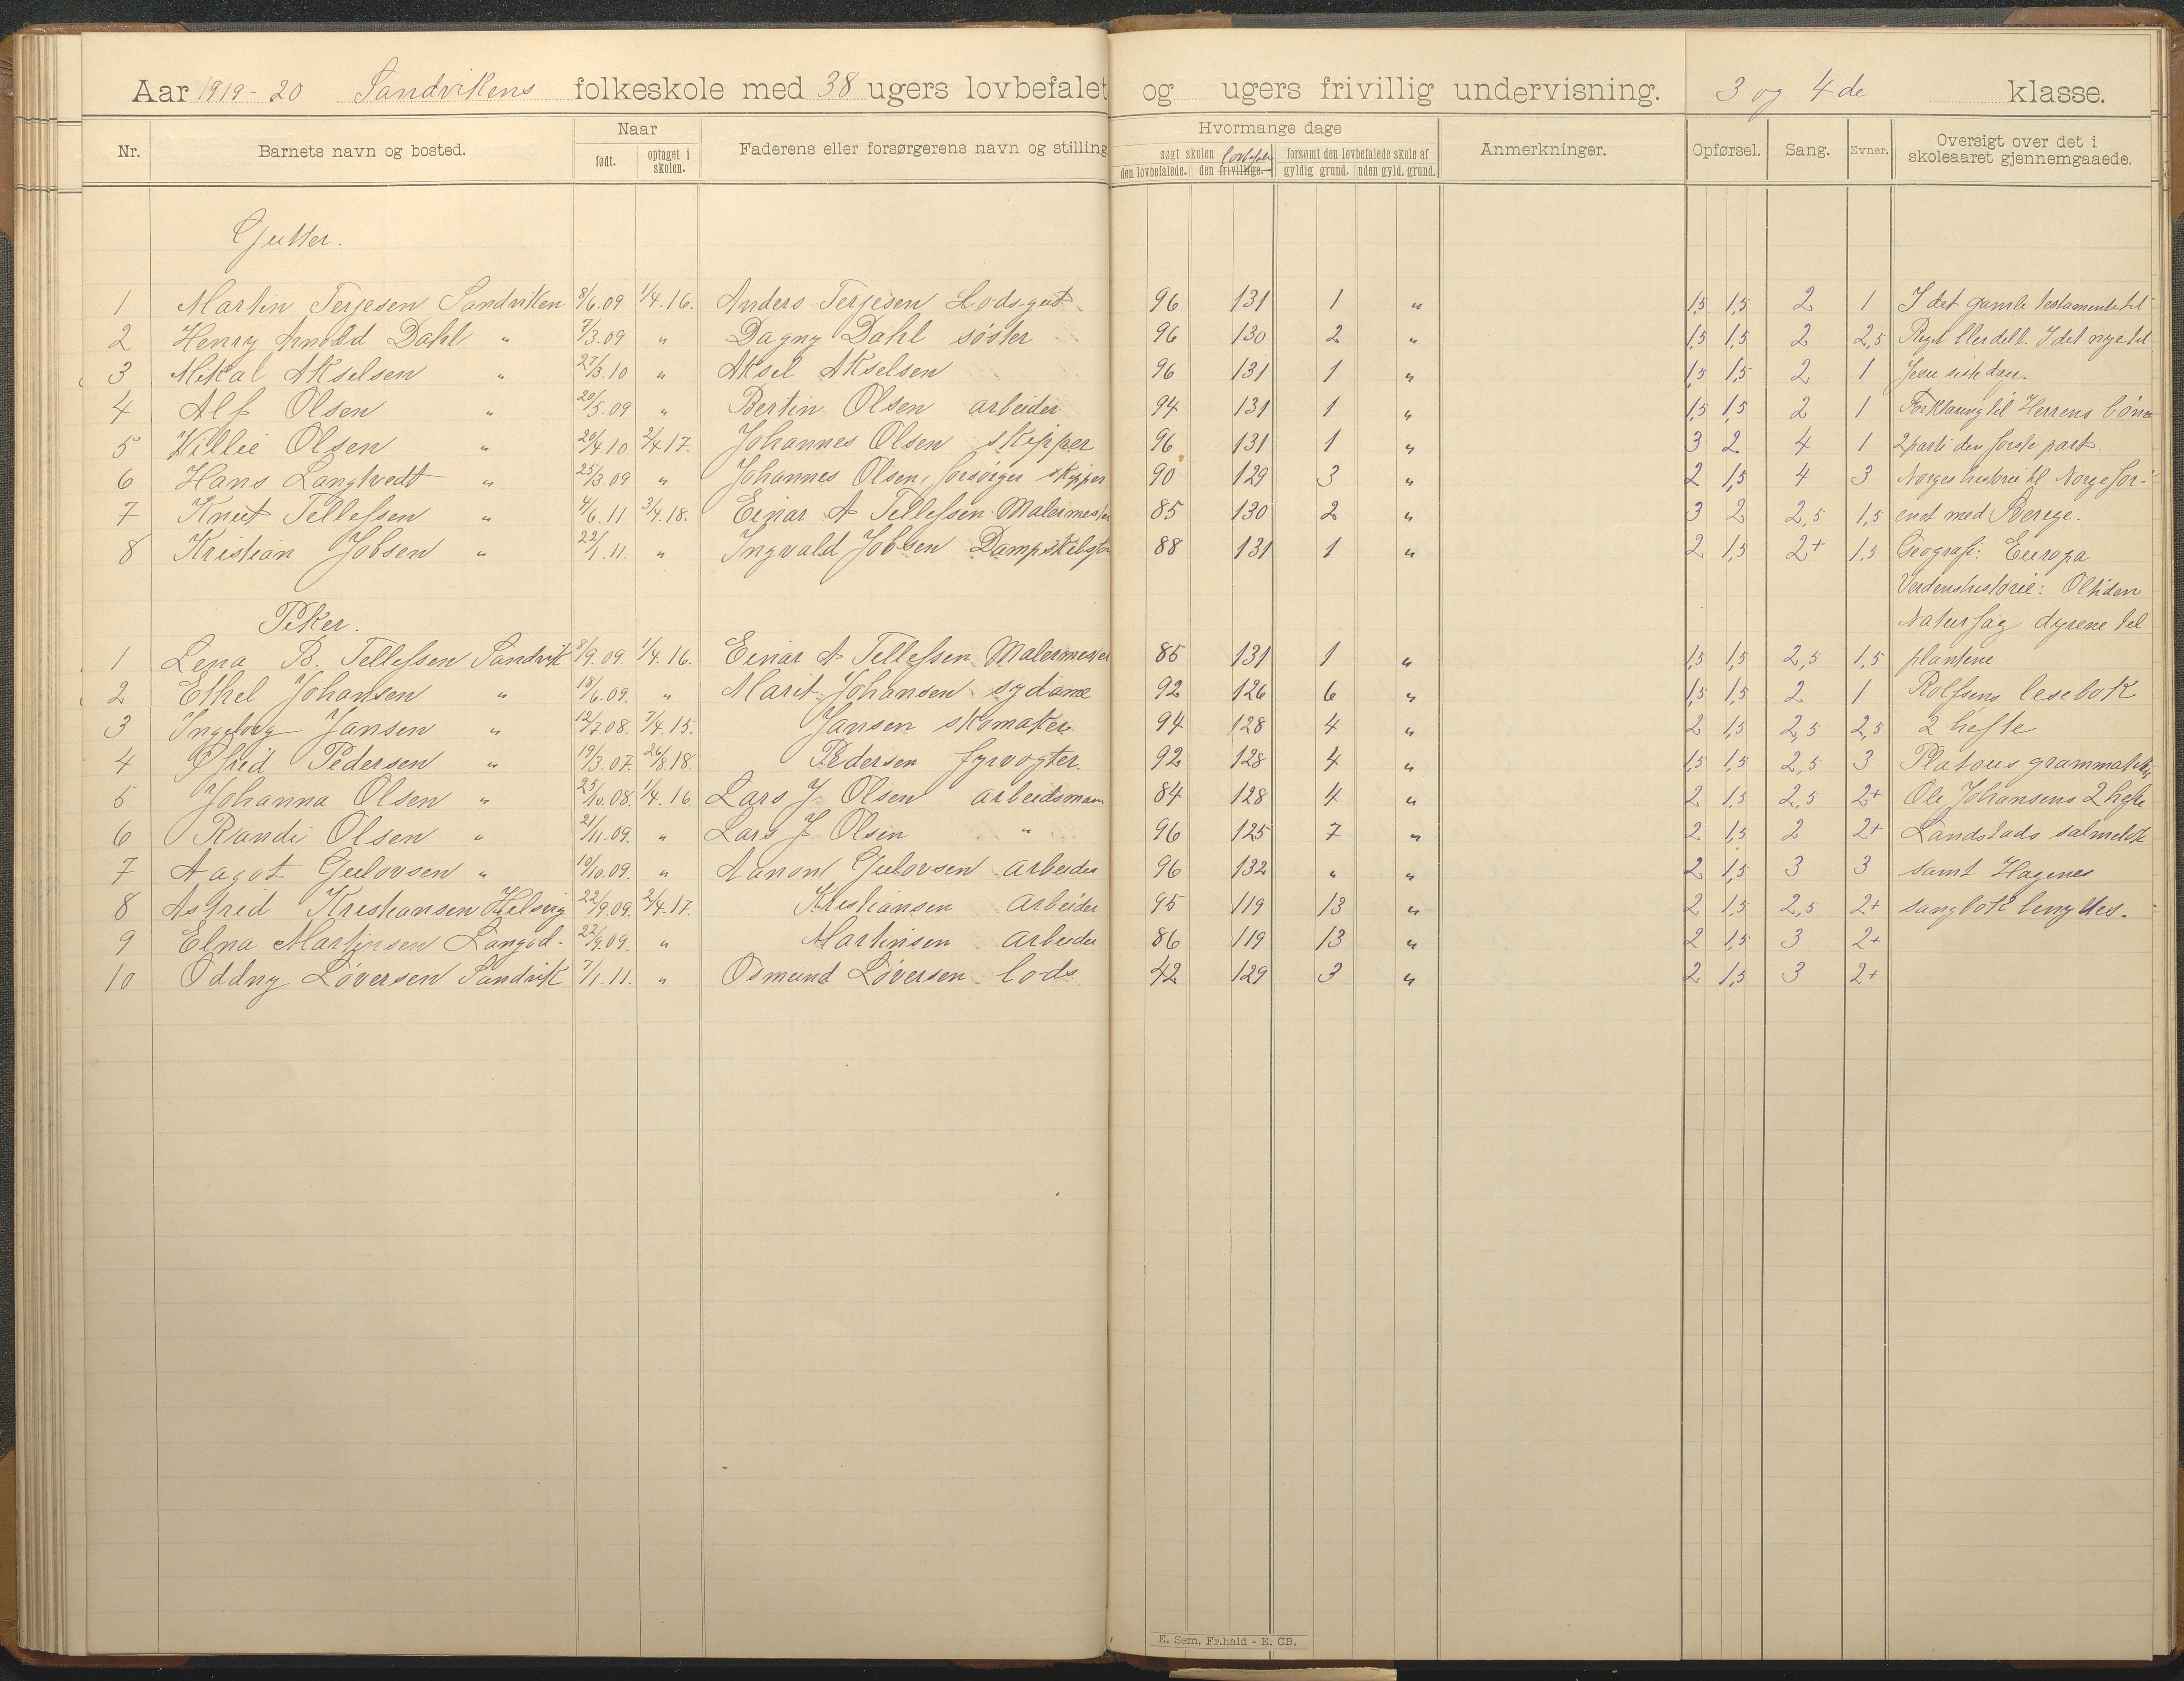 Aar 1919-20 Sandvikens folkeskole med 38 ugers lovbefalet og ugers frivillig undervisning. 3 og 4de klasse.
Nr. Barnets navn og bosted. Naar født. optaget i skolen. Faderens eller forsørgerens navn og stilling Hvormange dage søgt skolen den lovbefalede. den frivillige. lovbefale forsømt den lovbefalede skole af gyldig grund. uden gyld. grund. Anmerkninger. Opførsel. Sang. Evner. Oversigt over det i skoleaaret gjennemgaaede.
Gutter.
1 Martin Terjesen Sandviken 8/6.09 1/4.16. Anders Terjesen Lodsgut 96 131 1 " 1,5 1,5 2 1 I det gamle testamente til
2 Henry Arnold Dahl " 7/3.09 " Dagny Dahl søster 96 130 2 " 1,5 1,5 2 2,5 Riget blev delt. I det nye til
3 Mikal Akselsen " 27/3.10 " Aksel Akselsen 96 131 1 " 1,5 1,5 2 1 Jesu siste dage.
4 Alf Olsen " 20/5.09 " Bertin Olsen arbeider 94 131 1 " 1,5 1,5 2 1 Forklaring til Herrens bøn
5 Willie Olsen " 20/4.10 2/4.17. Johannes Olsen skipper 96 131 1 " 3 2 4 1 2 parti den første part.
6 Hans Langtvedt " 25/3.09 " Johannes Olsen, forsørger skipper 90 129 3 " 2 1,5 4 3 Norges historie til Norge for-
7 Knut Tellefsen " 4/6.11 3/4.18. Einar A Tellefsen Malermester 85 130 2 " 3 2 2,5 1,5 enet med Sverige.
8 Kristian Jobsen " 22/1.11. " Ingvald Jobsen Dampskibsfør 88 131 1 " 2 1,5 2+ 1,5 Geografi: Europa
Verdenshistorie: Oltiden
Piker. Naturfag dyrene til
1 Lena B. Tellefsen Sandvik 8/9.09 1/4.16. Einar A Tellefsen Malermester 85 131 1 " 1,5 1,5 2,5 1,5 plantene
2 Ethel Johansen " 18/6.09. " Marit Johansen sydame 92 126 6 " 1,5 1,5 2 1 Rolfsens lesebok
3 Ingeborg Jansen " 12/3.08. 7/4.15. Jansen skomaker 94 128 4 " 2 1,5 2,5 2,5 2 hefte
4 Pedersen " 19/3.07. 26/8.18. Pedersen fyrvogter. 92 128 4 " 1,5 1,5 2,5 3 Platous grammatikk
5 Johanna Olsen " 25/10.08. 1/4.16 Lars J. Olsen arbeidsmann 84 128 4 " 2 1,5 2,5 2+ Ole Johansens 2 hefte
6 Randi Olsen " 21/11.09. " Lars J Olsen " 96 125 7 " 2 1,5 2 2+ Landstads salmebok
7 Aagot Gulovsen " 10/10.09. " Aanon Gulovsen arbeider 96 132 " " 2 1,5 3 3 samt Hagenes
8 Astrid Kristiansen Helsvig 22/9.09. 2/4.17. Kristiansen arbeider 95 119 13 " 2 1,5 2,5 2+ sangbok benyttes.
9 Elna Martinsen Langød. 22/9.09. " Martinsen arbeider 86 119 13 " 2 1,5 3 2+
10 Oddny Løversen Sandvik 7/1.11. " Osmund Løversen lods 42 129 3 " 2 1,5 3 2+
E. Sem, Fr.hald - E. CB.